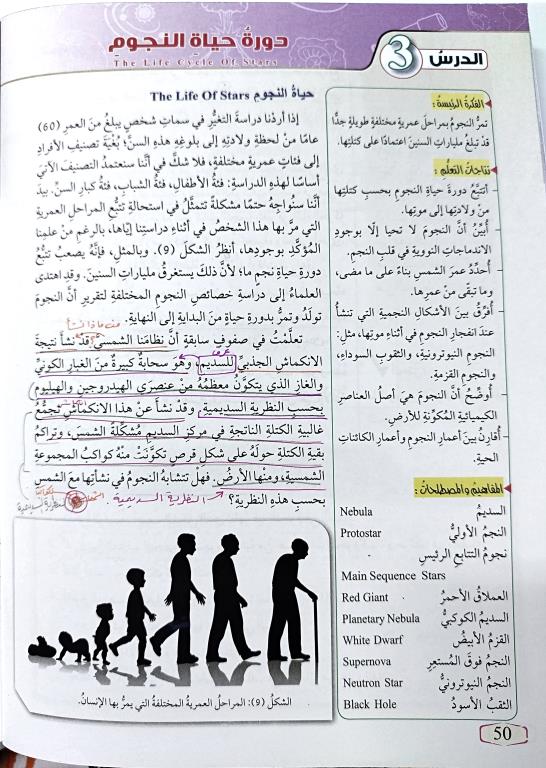 الدرسُ 3
دورةُ حياةِ النجومِ
The Life Cycle Of Stars
الفكرةُ الرئيسةُ:
تمرُّ النجومُ بمراحلَ عمريةٍ مختلفةٍ طويلةٍ جدًّا
قدْ تبلغُ ملياراتِ السنينَ اعتمادًا على كتلتِها.
نتاجاتُ التعلُّمِ:
- أتتبَّعُ دورةَ حياةِ النجومِ بحسبِ كتلتِها
منْ ولادتِها إلى موتِها.
- أُبيِّنُ أنَّ النجومَ لا تحيا إلّا بوجودِ
الاندماجاتِ النوويةِ في قلبِ النجمِ.
- أُحدِّدُ عمرَ الشمسِ بناءً على ما مضى،
وما تبقّى منْ عمرِها.
- أُفرِّقُ بينَ الأشكالِ النجميةِ التي تنشأُ
عندَ انفجارِ النجومِ في أثناءِ موتِها، مثلِ:
النجومِ النيوترونيةِ، والثقوبِ السوداءِ،
والنجومِ القزمةِ.
- أُوضِّحُ أنَّ النجومَ هيَ أصلُ العناصرِ
الكيميائيةِ المكوِّنةِ للأرضِ.
- أُقارنُ بينَ أعمارِ النجومِ وأعمارِ الكائناتِ
الحيةِ.
المفاهيمُ والمصطلحاتُ:
السديمُ Nebula
النجمُ الأوليُّ Protostar
نجومُ التتابعِ الرئيسِ
Main Sequence Stars
العملاقُ الأحمرُ Red Giant
السديمُ الكوكبيُّ Planetary Nebula
القزمُ الأبيضُ White Dwarf
النجمُ فوقَ المُستعِرِ Supernova
النجمُ النيوترونيُّ Neutron Star
الثقبُ الأسودُ Black Hole
حياةُ النجومِ The Life Of Stars
إذا أردْنا دراسةَ التغيُّرِ في سماتِ شخصٍ يبلغُ منَ العمرِ (60)
عامًا منْ لحظةِ ولادتِهِ إلى بلوغِهِ هذهِ السنَّ؛ بُغْيَةَ تصنيفِ الأفرادِ
إلى فئاتٍ عمريةٍ مختلفةٍ، فلا شكَّ في أنَّنا سنعتمدُ التصنيفَ الآتيَ
أساسًا لهذهِ الدراسةِ: فئةُ الأطفالِ، فئةُ الشبابِ، فئةُ كبارِ السنِّ. بيدَ
أنَّنا سنُواجِهُ حتمًا مشكلةً تتمثَّلُ في استحالةِ تتبُّعِ المراحلِ العمريةِ
التي مرَّ بها هذا الشخصُ في أثناءِ دراستِنا إيّاها، بالرغمِ منْ علمِنا
المُؤكَّدِ بوجودِها، أنظرُ الشكلَ (9). وبالمثلِ، فإنَّهُ يصعبُ تتبُّعُ
دورةِ حياةِ نجمٍ ما؛ لأنَّ ذلكَ يستغرقُ ملياراتِ السنينَ. وقدِ اهتدى
العلماءُ إلى دراسةِ خصائصِ النجومِ المختلفةِ لتقريرِ أنَّ النجومَ
تولَدُ وتمرُّ بدورةِ حياةٍ منَ البدايةِ إلى النهايةِ.
من ماذا نشأ
تعلَّمْتُ في صفوفٍ سابقةٍ أنَّ نظامَنا الشمسيَّ قدْ نشأَ نتيجةَ
الانكماشِ الجذبيِّ للسديمِ، وهوَ سحابةٌ كبيرةٌ منَ الغبارِ الكونيِّ
والغازِ الذي يتكوَّنُ معظمُهُ منْ عنصرَيِ الهيدروجينِ والهيليومِ
بحسبِ النظريةِ السديميةِ. وقدْ نشأَ عنْ هذا الانكماشِ تجمُّعُ
غالبيةِ الكتلةِ الناتجةِ في مركزِ السديمِ مُشكِّلةً الشمسَ، وتراكمُ
بقيةِ الكتلةِ حولَهُ على شكلِ قرصٍ تكوَّنَتْ منْهُ كواكبُ المجموعةِ
الشمسيةِ، ومنْها الأرضُ. فهلْ تتشابهُ النجومُ في نشأتِها معَ الشمسِ
بحسبِ هذهِ النظريةِ؟
النظرية السديمية
الشكلُ (9): المراحلُ العمريةُ المختلفةُ التي يمرُّ بها الإنسانُ.
50